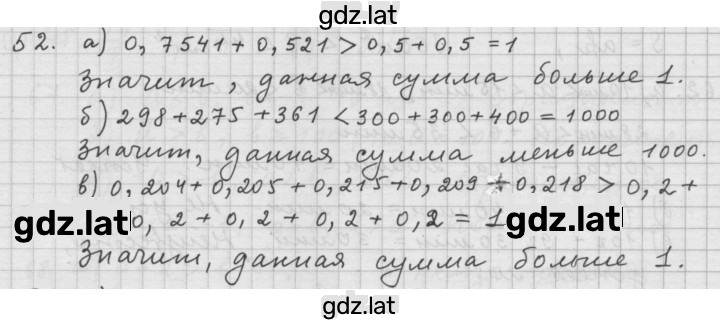 gdz.lat
52. а) 0, 7541 + 0, 521 > 0, 5 + 0, 5 = 1
Значит, данная сумма больше 1.
б) 298 + 275 + 361 < 300 + 300 + 400 = 1000
Значит, данная сумма меньше 1000.
в) 0, 204 + 0, 205 + 0, 215 + 0, 209 + 0, 218 > 0, 2 +
gdz.lat 0, 2 + 0, 2 + 0, 2 + 0, 2 = 1 gdz.lat
Значит, данная сумма больше 1.
gdz.lat